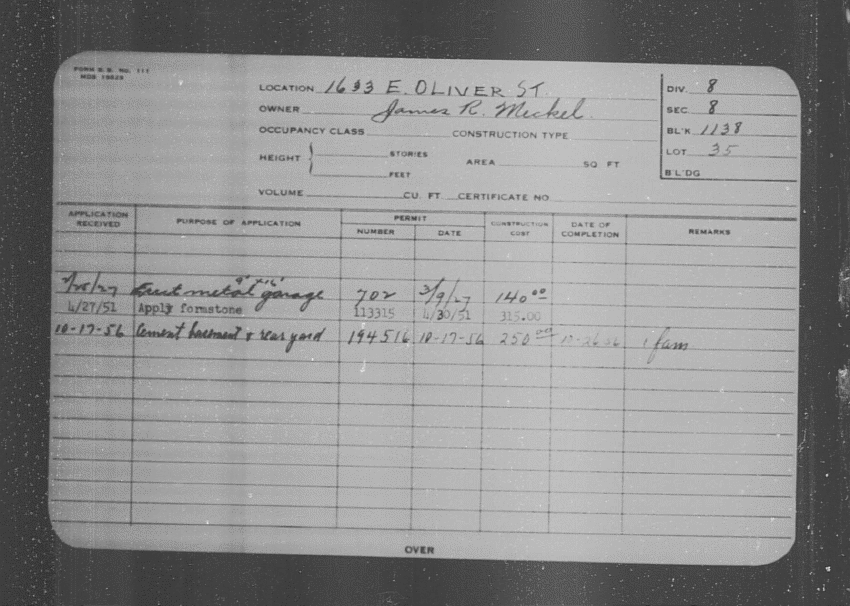 FORM B. B. NO. 111
MDS 19829
LOCATION 1633 E. OLIVER ST.
OWNER James R. Meckel
OCCUPANCY CLASS CONSTRUCTION TYPE
HEIGHT STORIES AREA SQ FT
FEET
VOLUME CU. FT. CERTIFICATE NO
DIV. 8
SEC. 8
BL'K 1138
LOT 35
BL'DG
APPLICATION RECEIVED PURPOSE OF APPLICATION PERMIT CONSTRUCTION COST DATE OF COMPLETION REMARKS
NUMBER DATE
2/25/27 Erect metal garage 702 3/9/27 140.00
4/27/51 Apply formstone 113315 4/30/51 315.00
10-17-56 Cement basement & rear yard 194516 10-17-56 250.00 10-26-56 1 fam
OVER